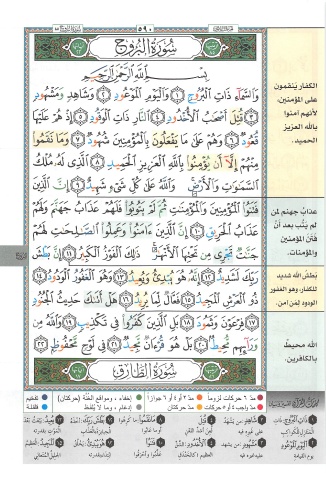 ٥٩٠
سُورَةُ البُرُوجِ
بِسْمِ اللَّهِ الرَّحْمَٰنِ الرَّحِيمِ
وَالسَّمَاءِ ذَاتِ الْبُرُوجِ ١ وَالْيَوْمِ الْمَوْعُودِ ٢ وَشَاهِدٍ وَمَشْهُودٍ
٣ قُتِلَ أَصْحَابُ الْأُخْدُودِ ٤ النَّارِ ذَاتِ الْوَقُودِ ٥ إِذْ هُمْ عَلَيْهَا
قُعُودٌ ٦ وَهُمْ عَلَىٰ مَا يَفْعَلُونَ بِالْمُؤْمِنِينَ شُهُودٌ ٧ وَمَا نَقَمُوا
مِنْهُمْ إِلَّا أَن يُؤْمِنُوا بِاللَّهِ الْعَزِيزِ الْحَمِيدِ ٨ الَّذِي لَهُ مُلْكُ
السَّمَٰوَٰتِ وَالْأَرْضِ وَاللَّهُ عَلَىٰ كُلِّ شَيْءٍ شَهِيدٌ ٩ إِنَّ الَّذِينَ
فَتَنُوا الْمُؤْمِنِينَ وَالْمُؤْمِنَٰتِ ثُمَّ لَمْ يَتُوبُوا فَلَهُمْ عَذَابُ جَهَنَّمَ وَلَهُمْ
عَذَابُ الْحَرِيقِ ١٠ إِنَّ الَّذِينَ ءَامَنُوا وَعَمِلُوا الصَّٰلِحَٰتِ لَهُمْ
جَنَّٰتٌ تَجْرِي مِن تَحْتِهَا الْأَنْهَٰرُ ذَٰلِكَ الْفَوْزُ الْكَبِيرُ ١١ إِنَّ بَطْشَ
رَبِّكَ لَشَدِيدٌ ١٢ إِنَّهُ هُوَ يُبْدِئُ وَيُعِيدُ ١٣ وَهُوَ الْغَفُورُ الْوَدُودُ ١٤
ذُو الْعَرْشِ الْمَجِيدُ ١٥ فَعَّالٌ لِّمَا يُرِيدُ ١٦ هَلْ أَتَىٰكَ حَدِيثُ الْجُنُودِ
١٧ فِرْعَوْنَ وَثَمُودَ ١٨ بَلِ الَّذِينَ كَفَرُوا فِي تَكْذِيبٍ ١٩ وَاللَّهُ مِن
وَرَائِهِم مُّحِيطٌ ٢٠ بَلْ هُوَ قُرْءَانٌ مَّجِيدٌ ٢١ فِي لَوْحٍ مَّحْفُوظٍ ٢٢
سُورَةُ الطَّارِقِ
الكفار يَنقمون
على المؤمنين،
لأنهم آمنوا
بالله العزيز
الحميد.
عذابُ جهنم لمن
لم يتُب بعد أن
فتَن المؤمنين
والمؤمنات.
بطش الله شديد
للكفار، وهو الغفور
الودود لمن آمن.
الله محيطٌ
بالكافرين.
مدّ ٦ حركات لزوماً
مدّ ٢ أو ٤ أو ٦ جوازاً
إخفاء، ومواقع الغنّة (حركتان)
تفخيم
مدّ واجب ٤ أو ٥ حركات
مدّ حركتان
إدغام، وما لا يُلفَظ
قلقلة